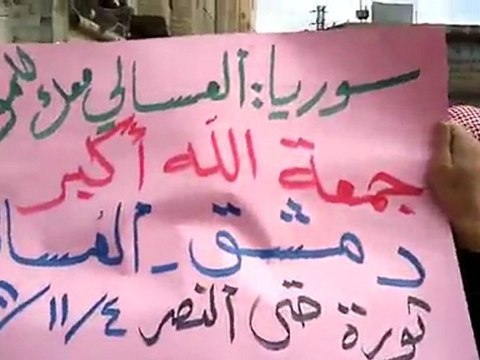 سوريا: العسالي
جمعة الله أكبر
دمشق - العسا
ثورة حتى النصر ٤/١١/